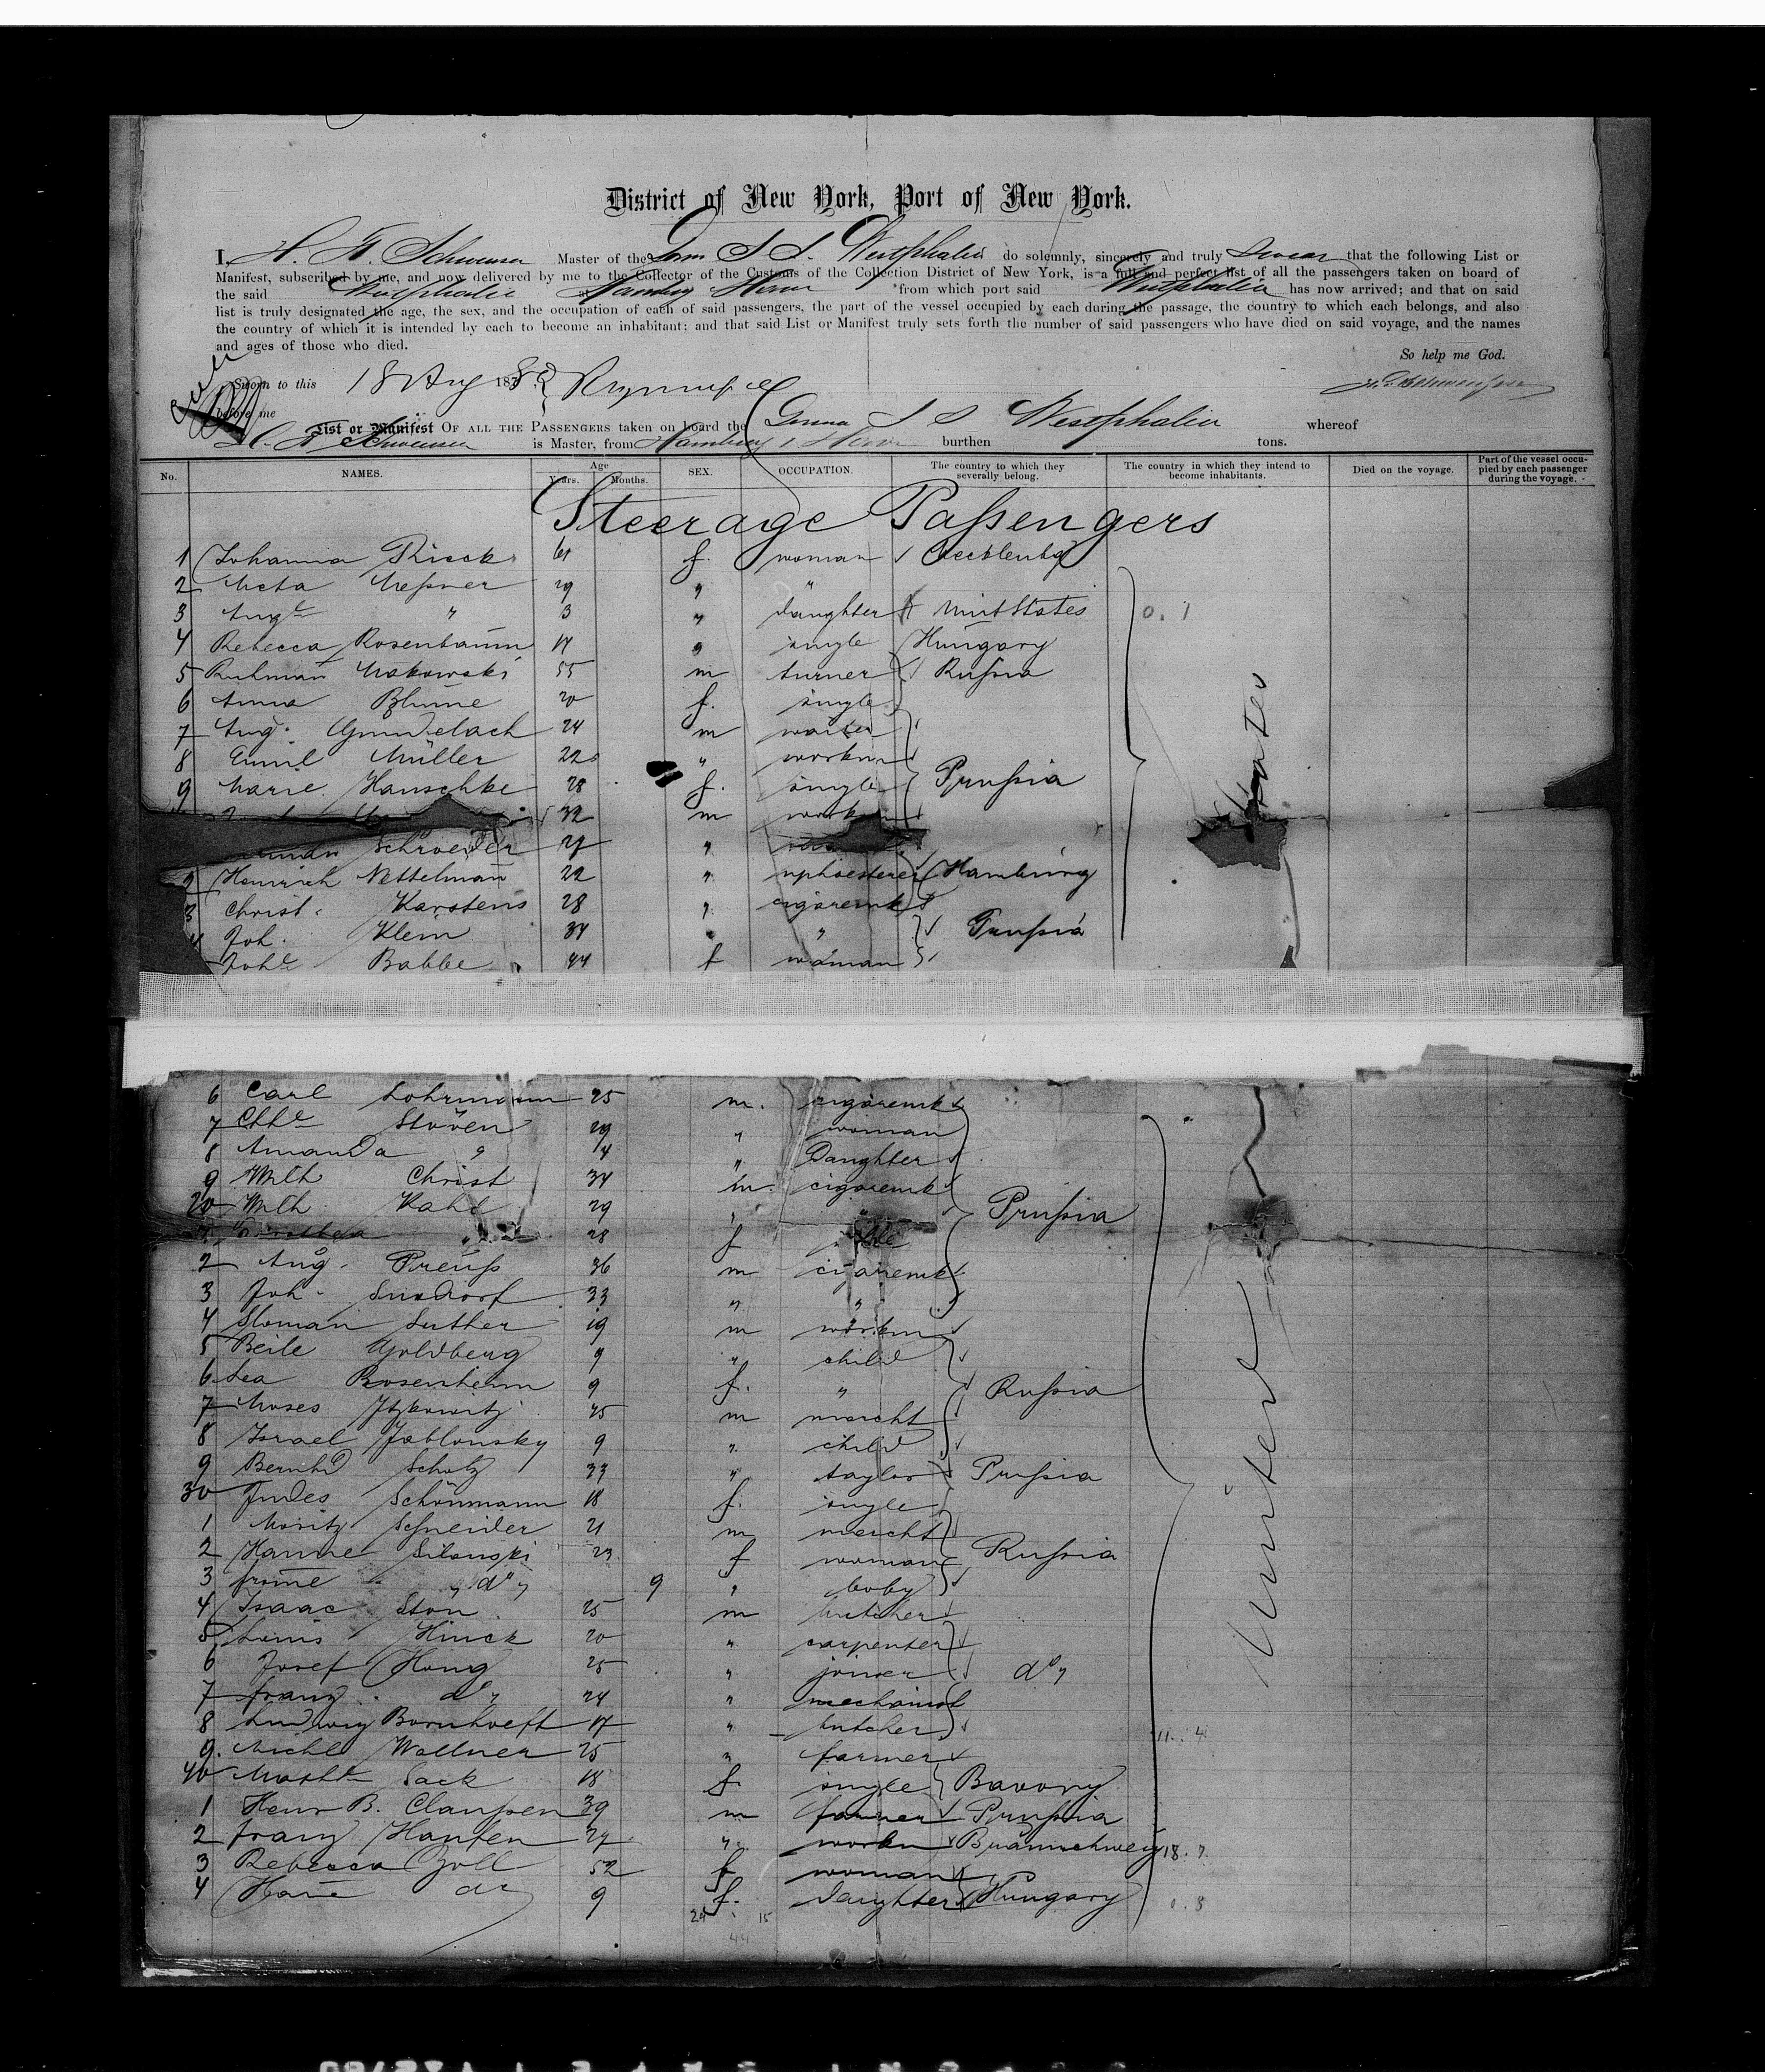 District of New York, Port of New York.
I, H. F. Schwensen Master of the S. S. Westphalia do solemnly, sincerely and truly swear that the following List or
Manifest, subscribed by me, and now delivered by me to the Collector of the Customs of the Collection District of New York, is a full and perfect list of all the passengers taken on board of
the said Westphalia at Hamburg Havre from which port said Westphalia has now arrived; and that on said
list is truly designated the age, the sex, and the occupation of each of said passengers, the part of the vessel occupied by each during the passage, the country to which each belongs, and also
the country of which it is intended by each to become an inhabitant; and that said List or Manifest truly sets forth the number of said passengers who have died on said voyage, and the names
and ages of those who died.
So help me God.
Sworn to this 18 Aug 188
before me
List or Manifest OF ALL THE PASSENGERS taken on board the S S Westphalia whereof
is Master, from Hamburg Havre burthen tons.
No. NAMES. Age Years. Months. SEX. OCCUPATION. The country to which they severally belong. The country in which they intend to become inhabitants. Died on the voyage. Part of the vessel occupied by each passenger during the voyage.
Steerage Passengers
1 Johanna 61 f. woman Mecklenbg
2 Meta Messner 29 " "
3 Augte " 3 " daughter UnitStates 0. 1
4 Rebecca Rosenbaum 17 " single Hungary
5 Makowski 55 m turner Russia
6 Anna Blume 20 f. single
7 Aug. Gundelach 24 m waiter
8 Emil Müller 22 " workm
9 Marie Hanschke 28 f. single Prussia
32 m workm
Schroeder 27 "
2 Heinrich Nettelmann 22 " upholsterer Hamburg
3 Christ. Karstens 28 " cigaremk
Joh. Klein 34 " " Prussia
Johe Babbe 44 f woman
6 Carl Lohrmann 25 m. cigaremk
7 Stöven 29 " woman
8 Amanda " 14 " Daughter
9 Wilh Christ 34 m. cigaremk
20 Wilh Kahl 29 " Prussia
28 f
2 Aug. Preuss 36 m cigaremk
3 Joh. 33 " "
4 Sloman Luther 19 m workm
5 Beile Goldberg 9 " child
6 Lea Rosenheim 9 f. " Russia
7 Moses Itzkowitz 25 m marcht
8 Israel Jablonsky 9 " child
9 Bernhd Schulz 33 " taylor Prussia
30 Judes Schönmann 18 f. single
1 Moritz Schneider 21 m marcht
2 Hanne Silanski 23 f woman Russia
3 do 9 " baby
4 Isaac Ston 25 m butcher
5 Louis Hinck 20 " carpenter
6 Josef Honig 25 " joiner do
7 Franz do 24 " mechanist
8 Ludwig Bornhoeft 17 " butcher 11. 4
9. Michl Wallner 25 " farmer
40 Sack 18 f. single Bavary
1 Heinr B. Claussen 39 m farmer Prussia
2 Franz Hansen 27 " workm Braunschweig 18. 7
3 Rebecca Zoll 52 f woman
4 do 9 f. daughter Hungary 0. 3
24 15
44
United States